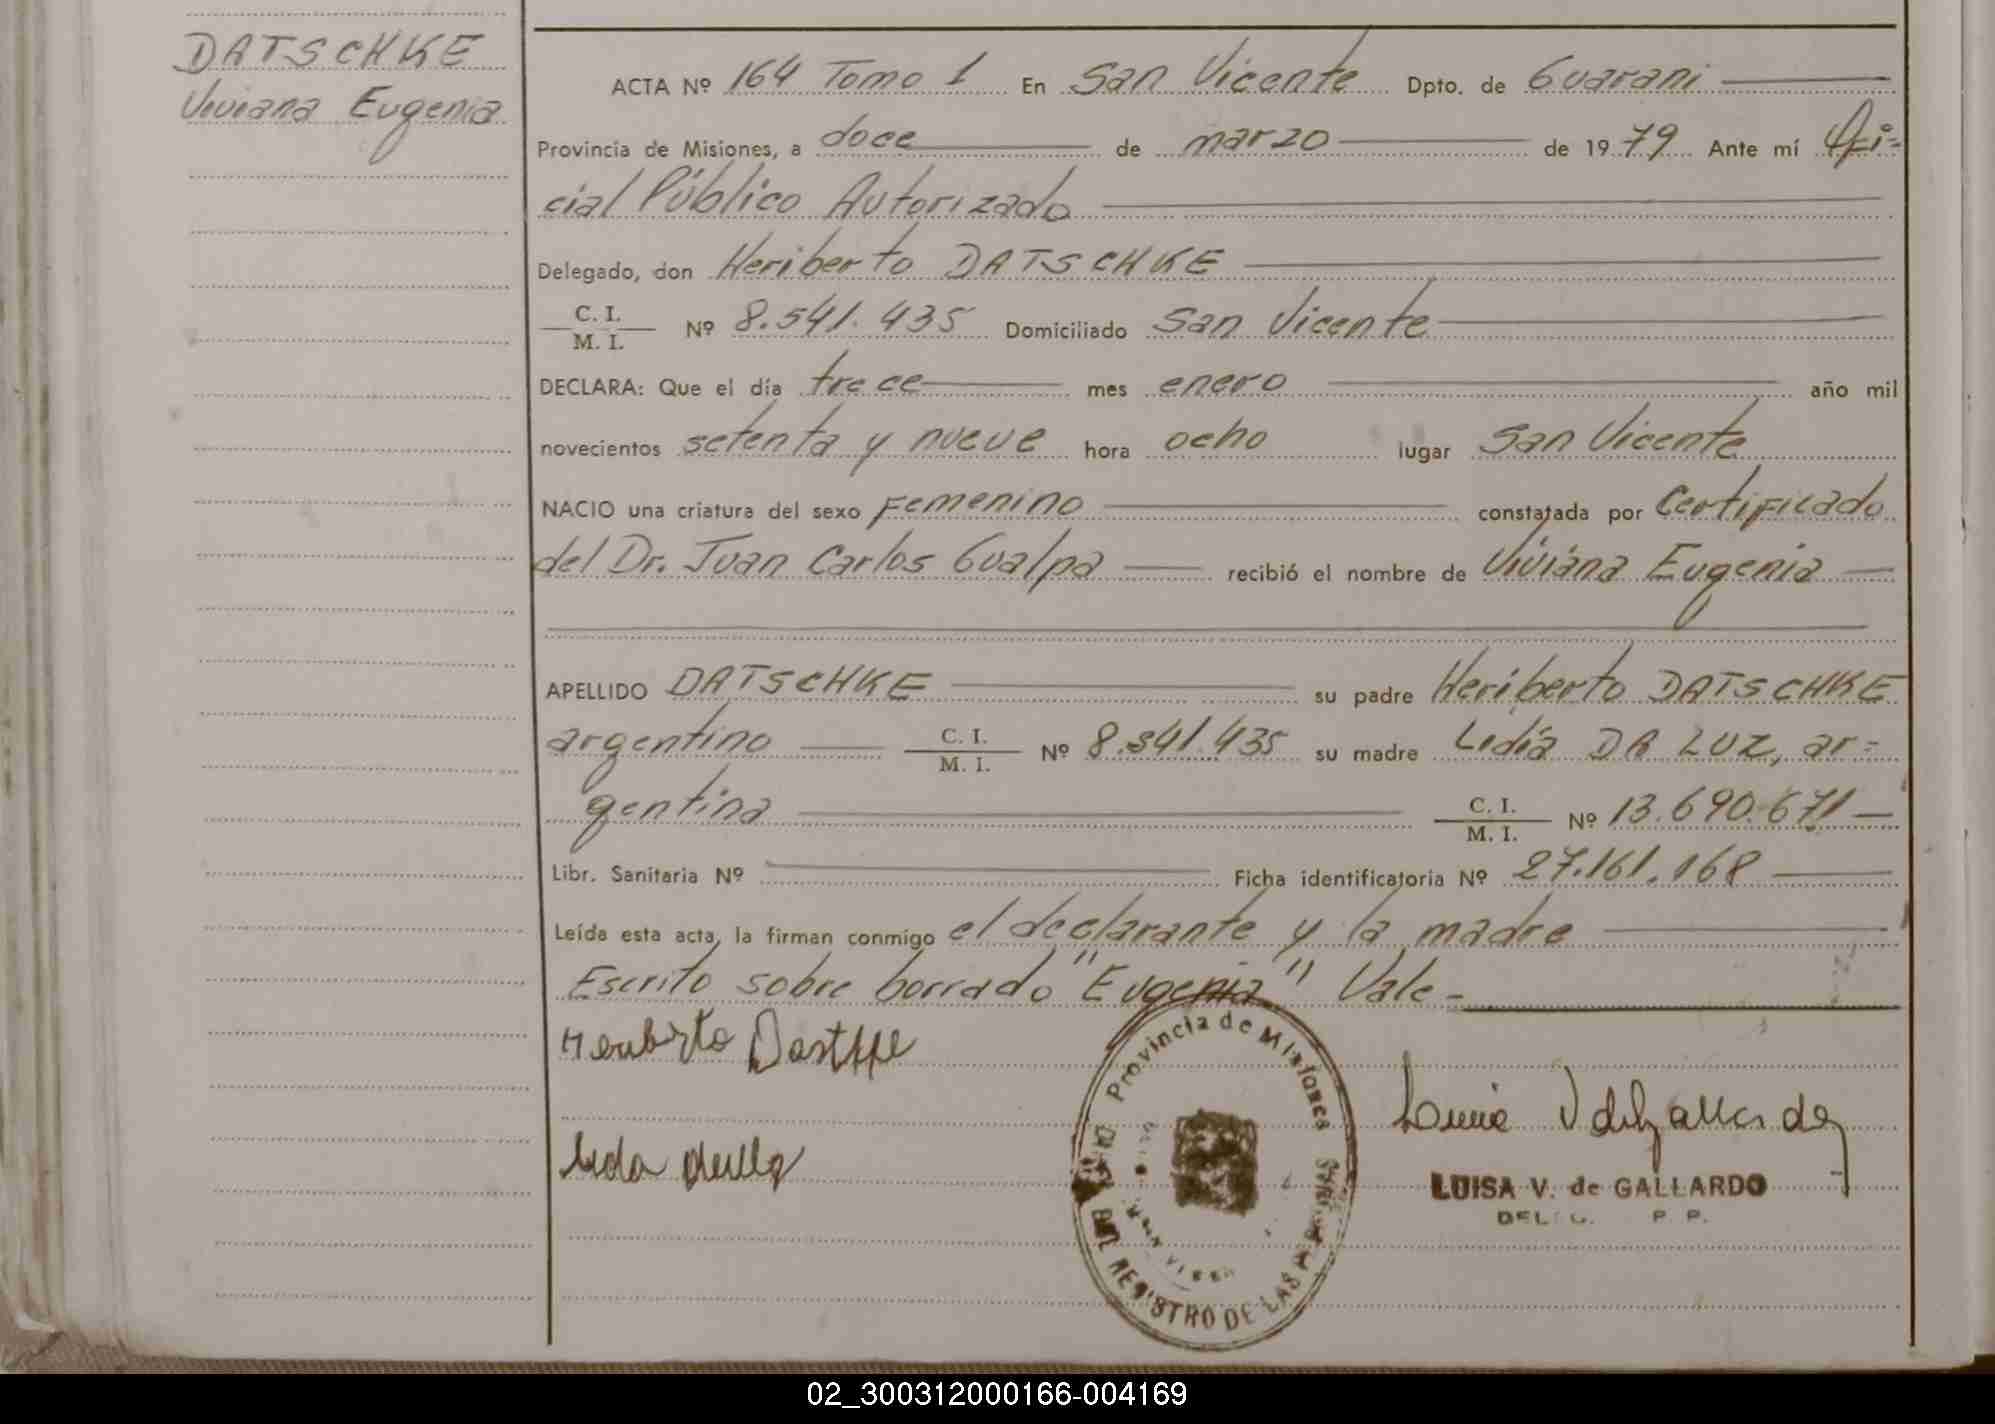 DATSCHKE
Viviana Eugenia
ACTA Nº 164 Tomo 1 En San Vicente Dpto. de Guarani
Provincia de Misiones, a doce de marzo de 1979 Ante mí Ofi=
cial Público Autorizado
Delegado, don Heriberto DATSCHKE
C. I.
M. I. Nº 8.541.435 Domiciliado San Vicente
DECLARA: Que el día trece mes enero año mil
novecientos setenta y nueve hora ocho lugar San Vicente
NACIO una criatura del sexo Femenino constatada por Certificado
del Dr. Juan Carlos Gualpa recibió el nombre de Viviana Eugenia
APELLIDO DATSCHKE su padre Heriberto DATSCHKE
argentino C. I. M. I. Nº 8.541.435 su madre Lidia DA LUZ, ar=
gentina C. I. M. I. Nº 13.690.671
Libr. Sanitaria Nº Ficha identificatoria Nº 27.161.168
Leída esta acta, la firman conmigo el declarante y la madre
Escrito sobre borrado "Eugenia" Vale
Provincia de Misiones
REGISTRO DE LAS
LUISA V. de GALLARDO
02_300312000166-004169